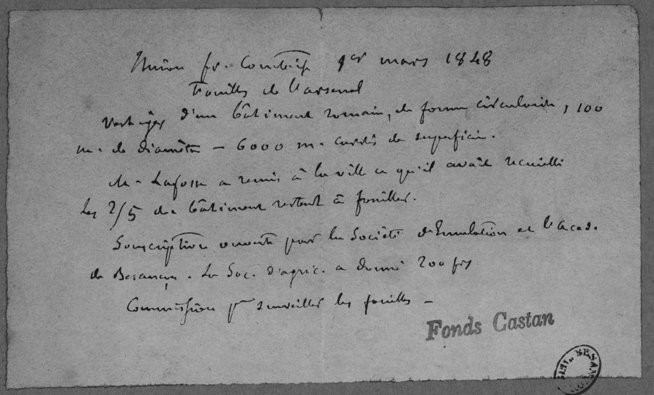 Union fr-comtoise 1er mars 1848
Fouilles de l'arsenal
Vestiges d'un bâtiment romain, de forme circulaire, 100
m. de diamètre – 6000 m. carrés de superficie.
M. Lafosse a remis à la ville ce qu'il avait recueilli
Les 2/5 du bâtiment restent à fouiller.
Souscription ouverte par la Société d'Emulation et l'Acad.
de Besançon. La Soc. d'agric. a donné 200 frs
Commission pr surveiller les fouilles –
Fonds Castan